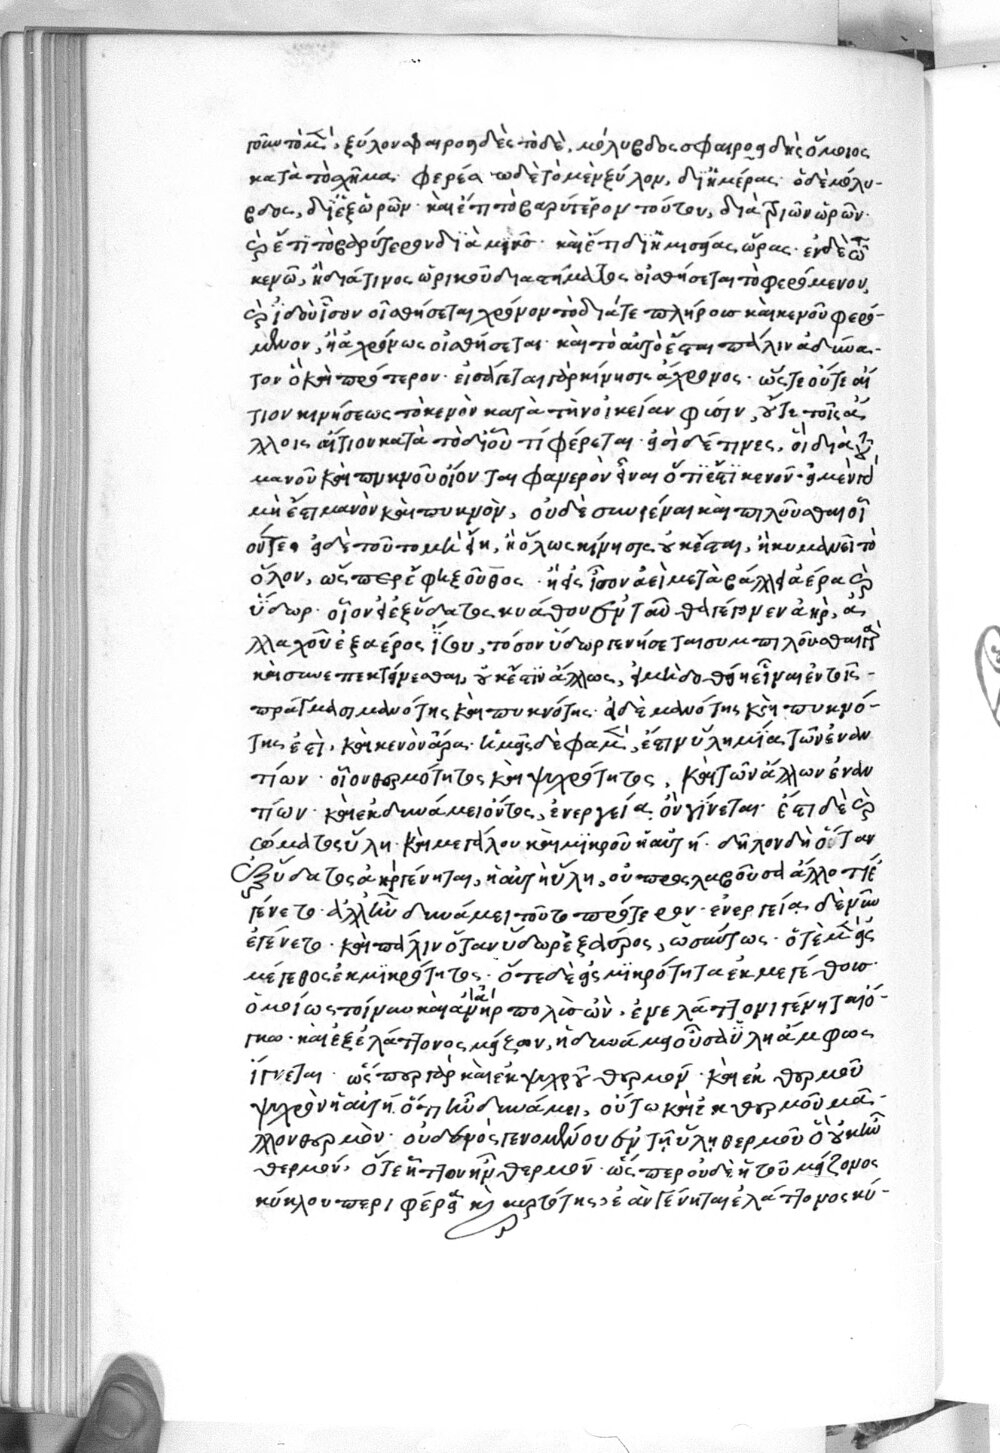 ξύλον σφαιροειδὲς τόδε, μόλυβδος σφαιροειδὴς ὅμοιος
κατὰ τὸ σχῆμα· φερέσθω δὲ τὸ μὲν ξύλον, δι' ἡμέρας· ὁ δὲ μόλυ-
βδος, δι' ἓξ ὡρῶν· καὶ ἔτι τὸ βαρύτερον τούτου, διὰ τριῶν ὡρῶν·
καὶ ἔτι τὸ βαρύτερον διὰ μιᾶς· καὶ ἔτι δι' ἡμισείας ὥρας· ἐν δὲ τῶ
κενῶ, ἢ διά τινος ὡρικοῦ διαστήματος οἰσθήσεται τὸ φερόμενον,
καὶ ἰδοὺ ἴσον οἰσθήσεται χρόνον τὸ διά τε πλήρους καὶ κενοῦ φερό-
μενον, ἢ ἀχρόνως οἰσθήσεται· καὶ τὸ αὐτὸ ἔσται πάλιν ἀδύνα-
τον ὃ καὶ πρότερον· εἰσάγεται γὰρ κίνησις ἄχρονος· ὥστε οὔτε αἴ
τιον κινήσεως τὸ κενὸν κατὰ τὴν οἰκείαν φύσιν, οὔτε τοῖς ἄ
λλοις αἴτιον κατὰ τὸ δι' οὗ τι φέρεται· εἰσὶ δέ τινες, οἳ διὰ τοῦ
μανοῦ καὶ πυκνοῦ οἴονται φανερὸν εἶναι ὅτι ἔστι κενόν· εἰ μὲν γὰρ
μή ἐστι μανὸν καὶ πυκνὸν, οὐδὲ συνιέναι καὶ πιλοῦσθαι οἷ
όν τε· εἰ δὲ τοῦτο μὴ εἴη, ἢ ὅλως κίνησις οὐκ ἔσται, ἢ κυμανεῖ τὸ
ὅλον, ὥσπερ ἔφη Ξοῦθος· ἢ εἰς ἴσον ἀεὶ μεταβάλλειν ἀέρα καὶ
ὕδωρ· οἷον εἰ ἐξ ὕδατος κυάθου ἐνταῦθα γέγονεν ἀὴρ, ἀ
λλαχοῦ ἐξ ἀέρος ἴσου, τόσον ὕδωρ γενήσεται συμπιλοῦσθαι γὰρ
καὶ συνεπεκτείνεσθαι, οὐκ ἔστιν ἄλλως, εἰ μὴ δοθείη εἶναι ἐν τοῖς
πράγμασι μανότης καὶ πυκνότης· εἰ δὲ μανότης καὶ πυκνό-
της ἐστὶ, καὶ κενὸν ἄρα· ἡμεῖς δὲ φαμὲν, ἔστιν ὕλη μία τῶν ἐναν
τίων· οἷον θερμότητος καὶ ψυχρότητος, καὶ τῶν ἄλλων ἐναν
τίων· καὶ ἐκ δυνάμει ὄντος, ἐνεργεία ὂν γίνεται· ἔστι δὲ καὶ
σώματος ὕλη· καὶ μεγάλου καὶ μικροῦ ἡ αὐτή· δῆλον δὴ ὅταν
ἐξ ὕδατος ἀὴρ γένηται, ἡ αὐτὴ ὕλη, οὐ προσλαβοῦσα ἄλλο τι ἐ
γένετο· ἀλλ' ἦν δυνάμει τοῦτο πρότερον· ἐνεργεία δὲ νῦν
ἐγένετο· καὶ πάλιν ὅταν ὕδωρ ἐξ ἀέρος, ὡσαύτως· ὁτὲ μὲν εἰς
μέγεθος ἐκ μικρότητος· ὁτὲ δὲ εἰς μικρότητα ἐκ μεγέθους·
ὁμοίως τοίνυν καὶ ἀὴρ πολὺς ὢν, ἐν ἐλάττονι γένηται ὄ-
γκω· καὶ ἐξ ἐλάττονος μείζων, ἡ δυνάμει οὖσα ὕλη ἄμφω
γίγνεται· ὥσπερ γὰρ καὶ ἐκ ψυχροῦ θερμόν· καὶ ἐκ θερμοῦ
ψυχρὸν ἡ αὐτή, ὅτι ἦν δυνάμει, οὕτω καὶ ἐκ θερμοῦ μᾶ-
λλον θερμὸν· οὐδενὸς γενομένου ἐν τῆ ὕλη θερμοῦ ὃ οὐκ ἦν
θερμόν, ὅτε ἧττον ἦν θερμόν· ὥσπερ οὐδὲ ἡ τοῦ μείζονος
κύκλου περιφέρεια καὶ κυρτότης, ἐὰν γένηται ἐλάττονος κύ-